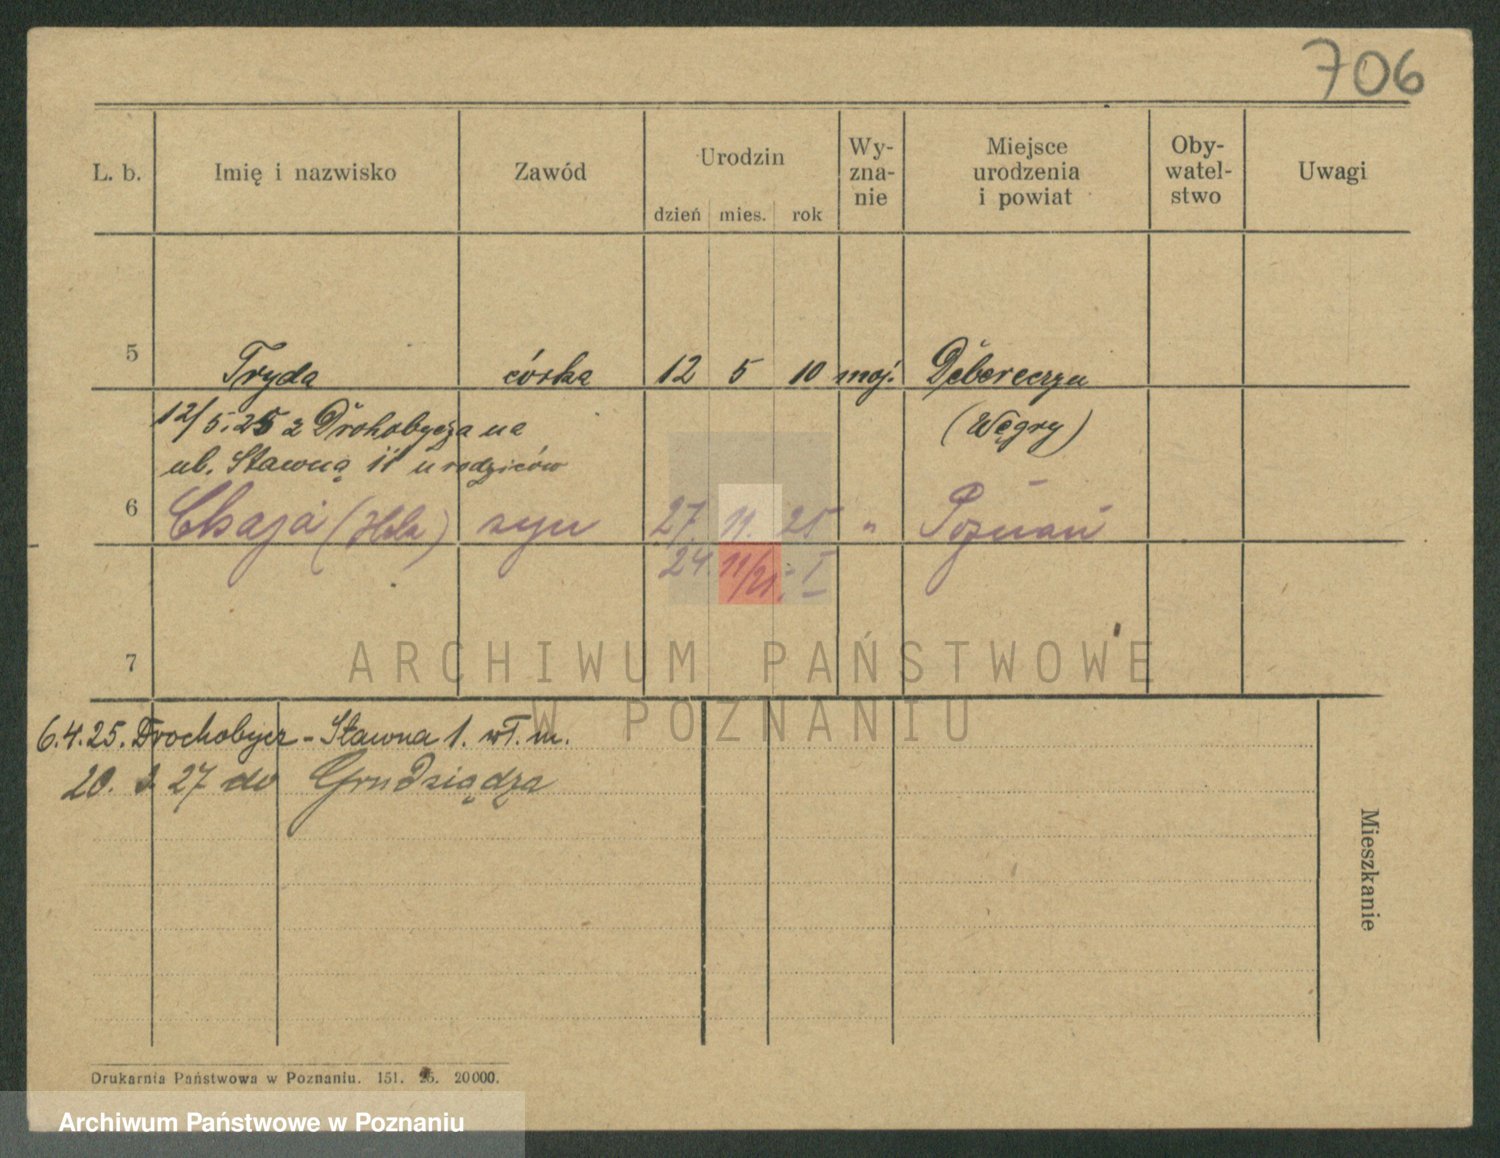 706
L. b. Imię i nazwisko Zawód Urodzin dzień mies. rok Wy-zna-nie Miejsce urodzenia i powiat Oby-watel-stwo Uwagi
5 Fryda córka 12 5 10 moj. Debereczyn
12/5.25 z Drohobycza na (Węgry)
ul. Stawną 11 u rodziców
6 Chaja syn 27. 11. 25 " Poznań
24. 11/25. I
7
ARCHIWUM PAŃSTWOWE
W POZNANIU
6.4.25. Drochobycz - Stawna 1. wł. m.
20. 27 do Grudziądza
Mieszkanie
Drukarnia Państwowa w Poznaniu. 151. 26. 20000.
Archiwum Państwowe w Poznaniu